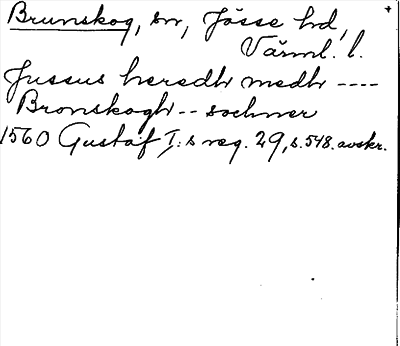 Brunskog, sn, Jösse hd,
Värml. l.
Jussus heredh medh ----
Bronskogh -- sochner
1560 Gustaf I:s reg. 29, s. 548. avskr.